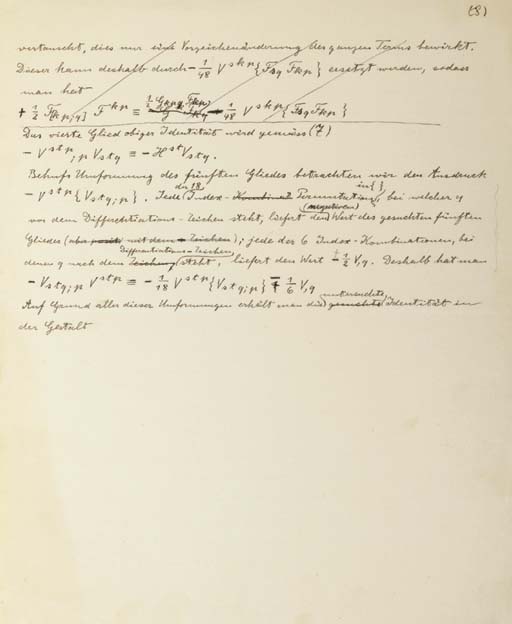 (8)
vertauscht, dies nur eine Vorzeichenänderung des ganzen Terms bewirkt.
Dieser kann deshalb durch - 1/48 V^{skp} {F_{sq} F_{kp}} ersetzt werden, sodass
man hat
+ 1/2 F_{[kp,q]} F^{kp} ≡ 1/48 V^{skp} {F_{sq} F_{kp}}
Das vierte Glied obiger Identität wird gemäss (7)
- V^{stp}_{;p} V_{stq} ≡ - H^{st} V_{stq}.
Behufs Umformung des fünften Gliedes betrachten wir den Ausdruck
- V^{stp} {V_{stq;p}}. Jede der 18 (Index- Permutationen) in { }, bei welcher q
vor dem Differentiations-Zeichen steht, liefert den (negativen) Wert des gesuchten fünften
Gliedes (also mit dem Zeichen); jede der 6 Index-Kombinationen, bei
denen q nach dem Zeichen Differentiations-Zeichen steht, liefert den Wert - 1/2 V_{,q}. Deshalb hat man
- V_{stq;p} V^{stp} ≡ - 1/18 V^{stp} {V_{stq;p}} ∓ 1/6 V_{,q}
Auf Grund aller dieser Umformungen erhält man die gesuchte untersuchte Identität in
der Gestalt